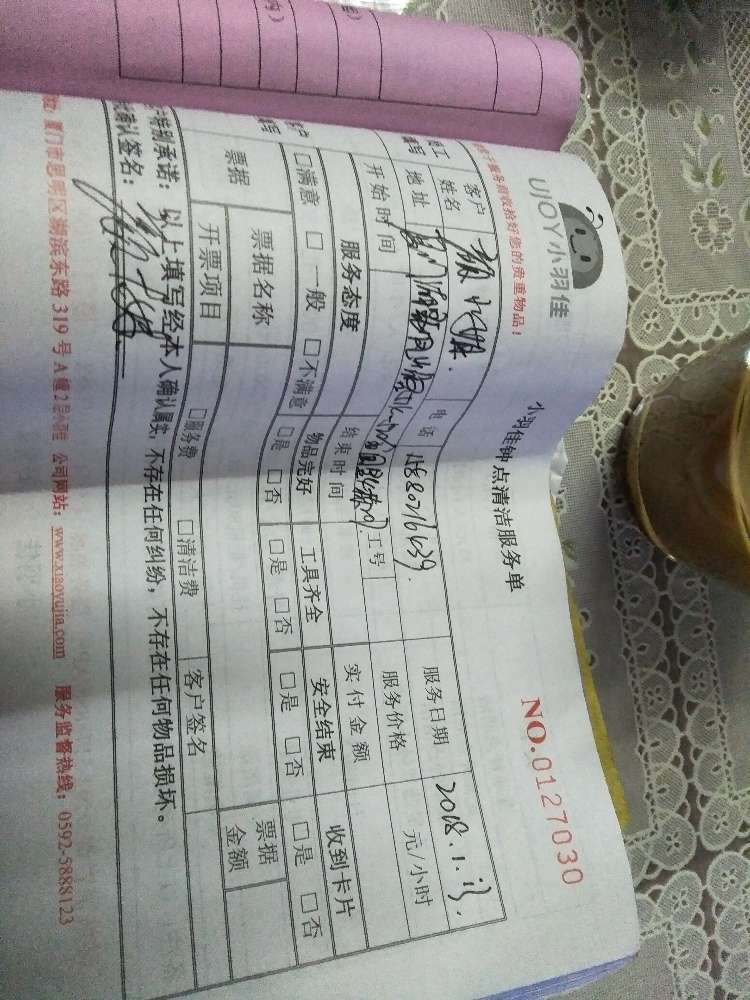 UJOY小羽佳
小羽佳钟点清洁服务单
NO.0127030
服务前收拾好您的贵重物品!
客户姓名
电话
服务日期 2018.1.13.
地址
服务价格 元/小时
开始时间
结束时间
工号
实付金额
服务态度 物品完好 工具齐全 安全结束 收到卡片
□满意 □一般 □不满意 □是 □否 □是 □否 □是 □否 □是 □否
票据 票据名称 □服务费 □清洁费 票据金额
开票项目 客户签名
特别承诺:以上填写经本人确认属实,不存在任何纠纷,不存在任何物品损坏。
确认签名:
厦门市思明区湖滨东路319号A幢2层小羽佳 公司网站:www.xiaoyujia.com 服务监督热线:0592-5888123